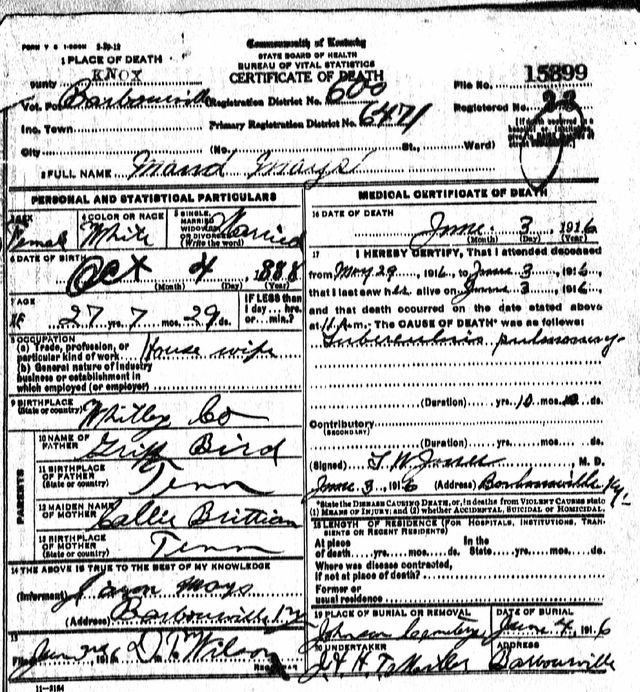 Commonwealth of Kentucky
STATE BOARD OF HEALTH
BUREAU OF VITAL STATISTICS
CERTIFICATE OF DEATH
1 PLACE OF DEATH
KNOX
County
File No. 15899
Vot. Pct Barbourville Registration District No. 600
Registered No. 22
Inc. Town Primary Registration District No. 6471
City (No. St., Ward)
2 FULL NAME Maud Mays
PERSONAL AND STATISTICAL PARTICULARS
3 SEX Female
4 COLOR OR RACE White
5 SINGLE, MARRIED WIDOWED OR DIVORCED (Write the word) Married
6 DATE OF BIRTH Oct 4 1888
(Month) (Day) (Year)
7 AGE
27 yrs. 7 mos. 29 ds.
IF LESS than
1 day....hrs.
or....min.?
8 OCCUPATION
(a) Trade, profession, or
particular kind of work House wife
(b) General nature of industry
business or establishment in
which employed (or employer)
9 BIRTHPLACE
(State or country) Whitley Co
PARENTS
10 NAME OF
FATHER Griff Bird
11 BIRTHPLACE
OF FATHER
(State or country) Tenn
12 MAIDEN NAME
OF MOTHER Callie Brittian
13 BIRTHPLACE
OF MOTHER
(State or country) Tenn
14 THE ABOVE IS TRUE TO THE BEST OF MY KNOWLEDGE
(Informant) Mays
(Address) Barbourville Ky
15
Filed 1916 D. T. Wilson
11-3184
MEDICAL CERTIFICATE OF DEATH
16 DATE OF DEATH
June 3 1916
(Month) (Day) (Year)
17 I HEREBY CERTIFY, That I attended deceased
from May 29, 1916, to June 3, 1916,
that I last saw her alive on June 3, 1916,
and that death occurred on the date stated above
at 11 A.m. The CAUSE OF DEATH* was as follows:
Tuberculosis pulmonary
(Duration) yrs. 10 mos. ds.
Contributory
(SECONDARY)
(Duration) yrs. mos. ds.
(Signed) M. D.
June 3, 1916 (Address) Barbourville Ky.
*State the DISEASE CAUSING DEATH, or, in deaths from VIOLENT CAUSES state
(1) MEANS OF INJURY; and (2) whether ACCIDENTAL, SUICIDAL or HOMICIDAL.
18 LENGTH OF RESIDENCE (FOR HOSPITALS, INSTITUTIONS, TRAN-
SIENTS OR RECENT RESIDENTS)
At place In the
of death....yrs....mos....ds. State....yrs....mos....ds.
Where was disease contracted,
if not at place of death?
Former or
usual residence
19 PLACE OF BURIAL OR REMOVAL
Johnson Cemetery
DATE OF BURIAL
June 4, 1916
20 UNDERTAKER
ADDRESS
Barbourville